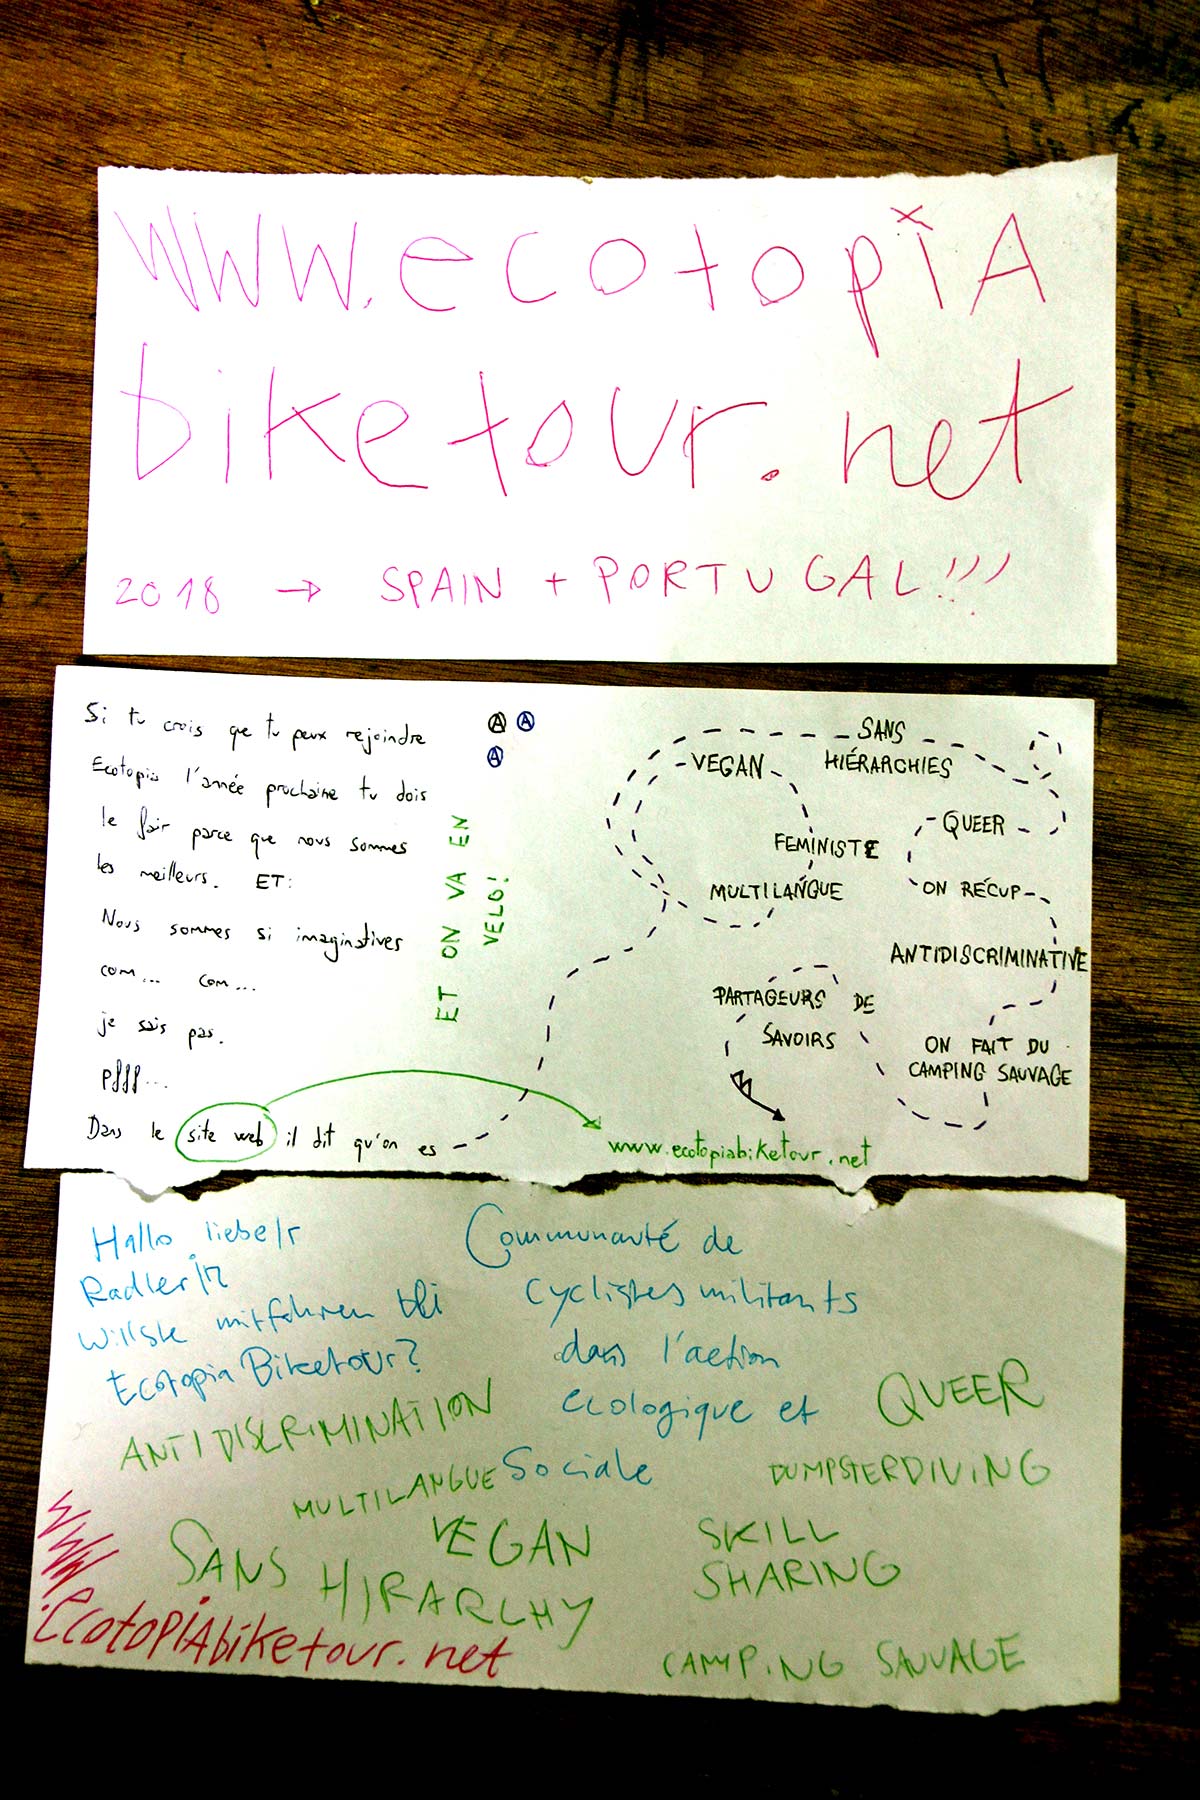 www.ecotopiA
biketour.net
2018 → SPAIN + PORTUGAL!!!
Si tu crois que tu peux rejoindre
Ecotopia l'année prochaine tu dois
le fair parce que nous sommes
les meilleurs. ET:
Nous sommes si imaginatives
com... com...
je sais pas.
Pffff...
Dans le site web il dit qu'on es
Ⓐ Ⓐ
Ⓐ
ET ON VA EN
VELO!
SANS
HIÉRARCHIES
VEGAN
QUEER
FEMINISTE
MULTILANGUE
ON RÉCUP
ANTIDISCRIMINATIVE
PARTAGEURS DE
SAVOIRS
ON FAIT DU
CAMPING SAUVAGE
www.ecotopiabiketour.net
Hallo liebe/r
Radler/in
Willste mitfahren bei
Ecotopia Biketour?
Communauté de
cyclistes militants
dans l'action
ecologique et
Sociale
QUEER
ANTIDISCRIMINATION
MULTILANGUE
DUMPSTERDIVING
VEGAN
SKILL
SHARING
SANS HIRARCHY
CAMPING SAUVAGE
www
.ecotopiAbiketour.net